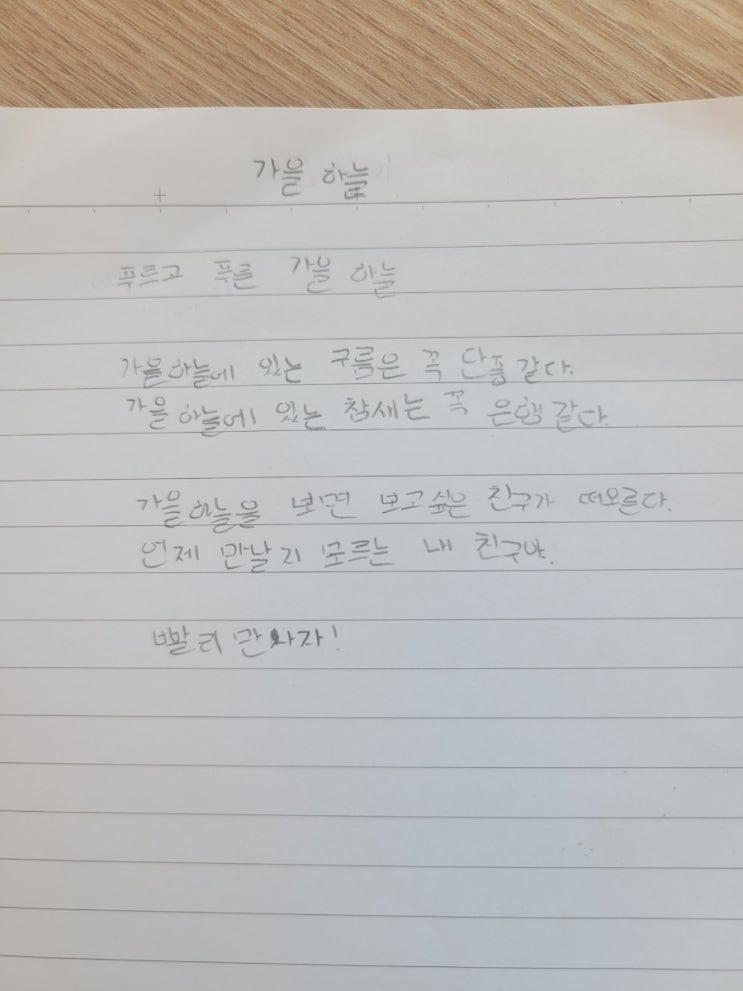 가을 하늘
푸르고 푸른 가을 하늘
가을하늘에 있는 구름은 꼭 단풍같다.
가을 하늘에 있는 참새는 꼭 은행같다.
가을하늘을 보면 보고싶은 친구가 떠오른다.
언제 만날지 모르는 내 친구야.
빨리 만나자!